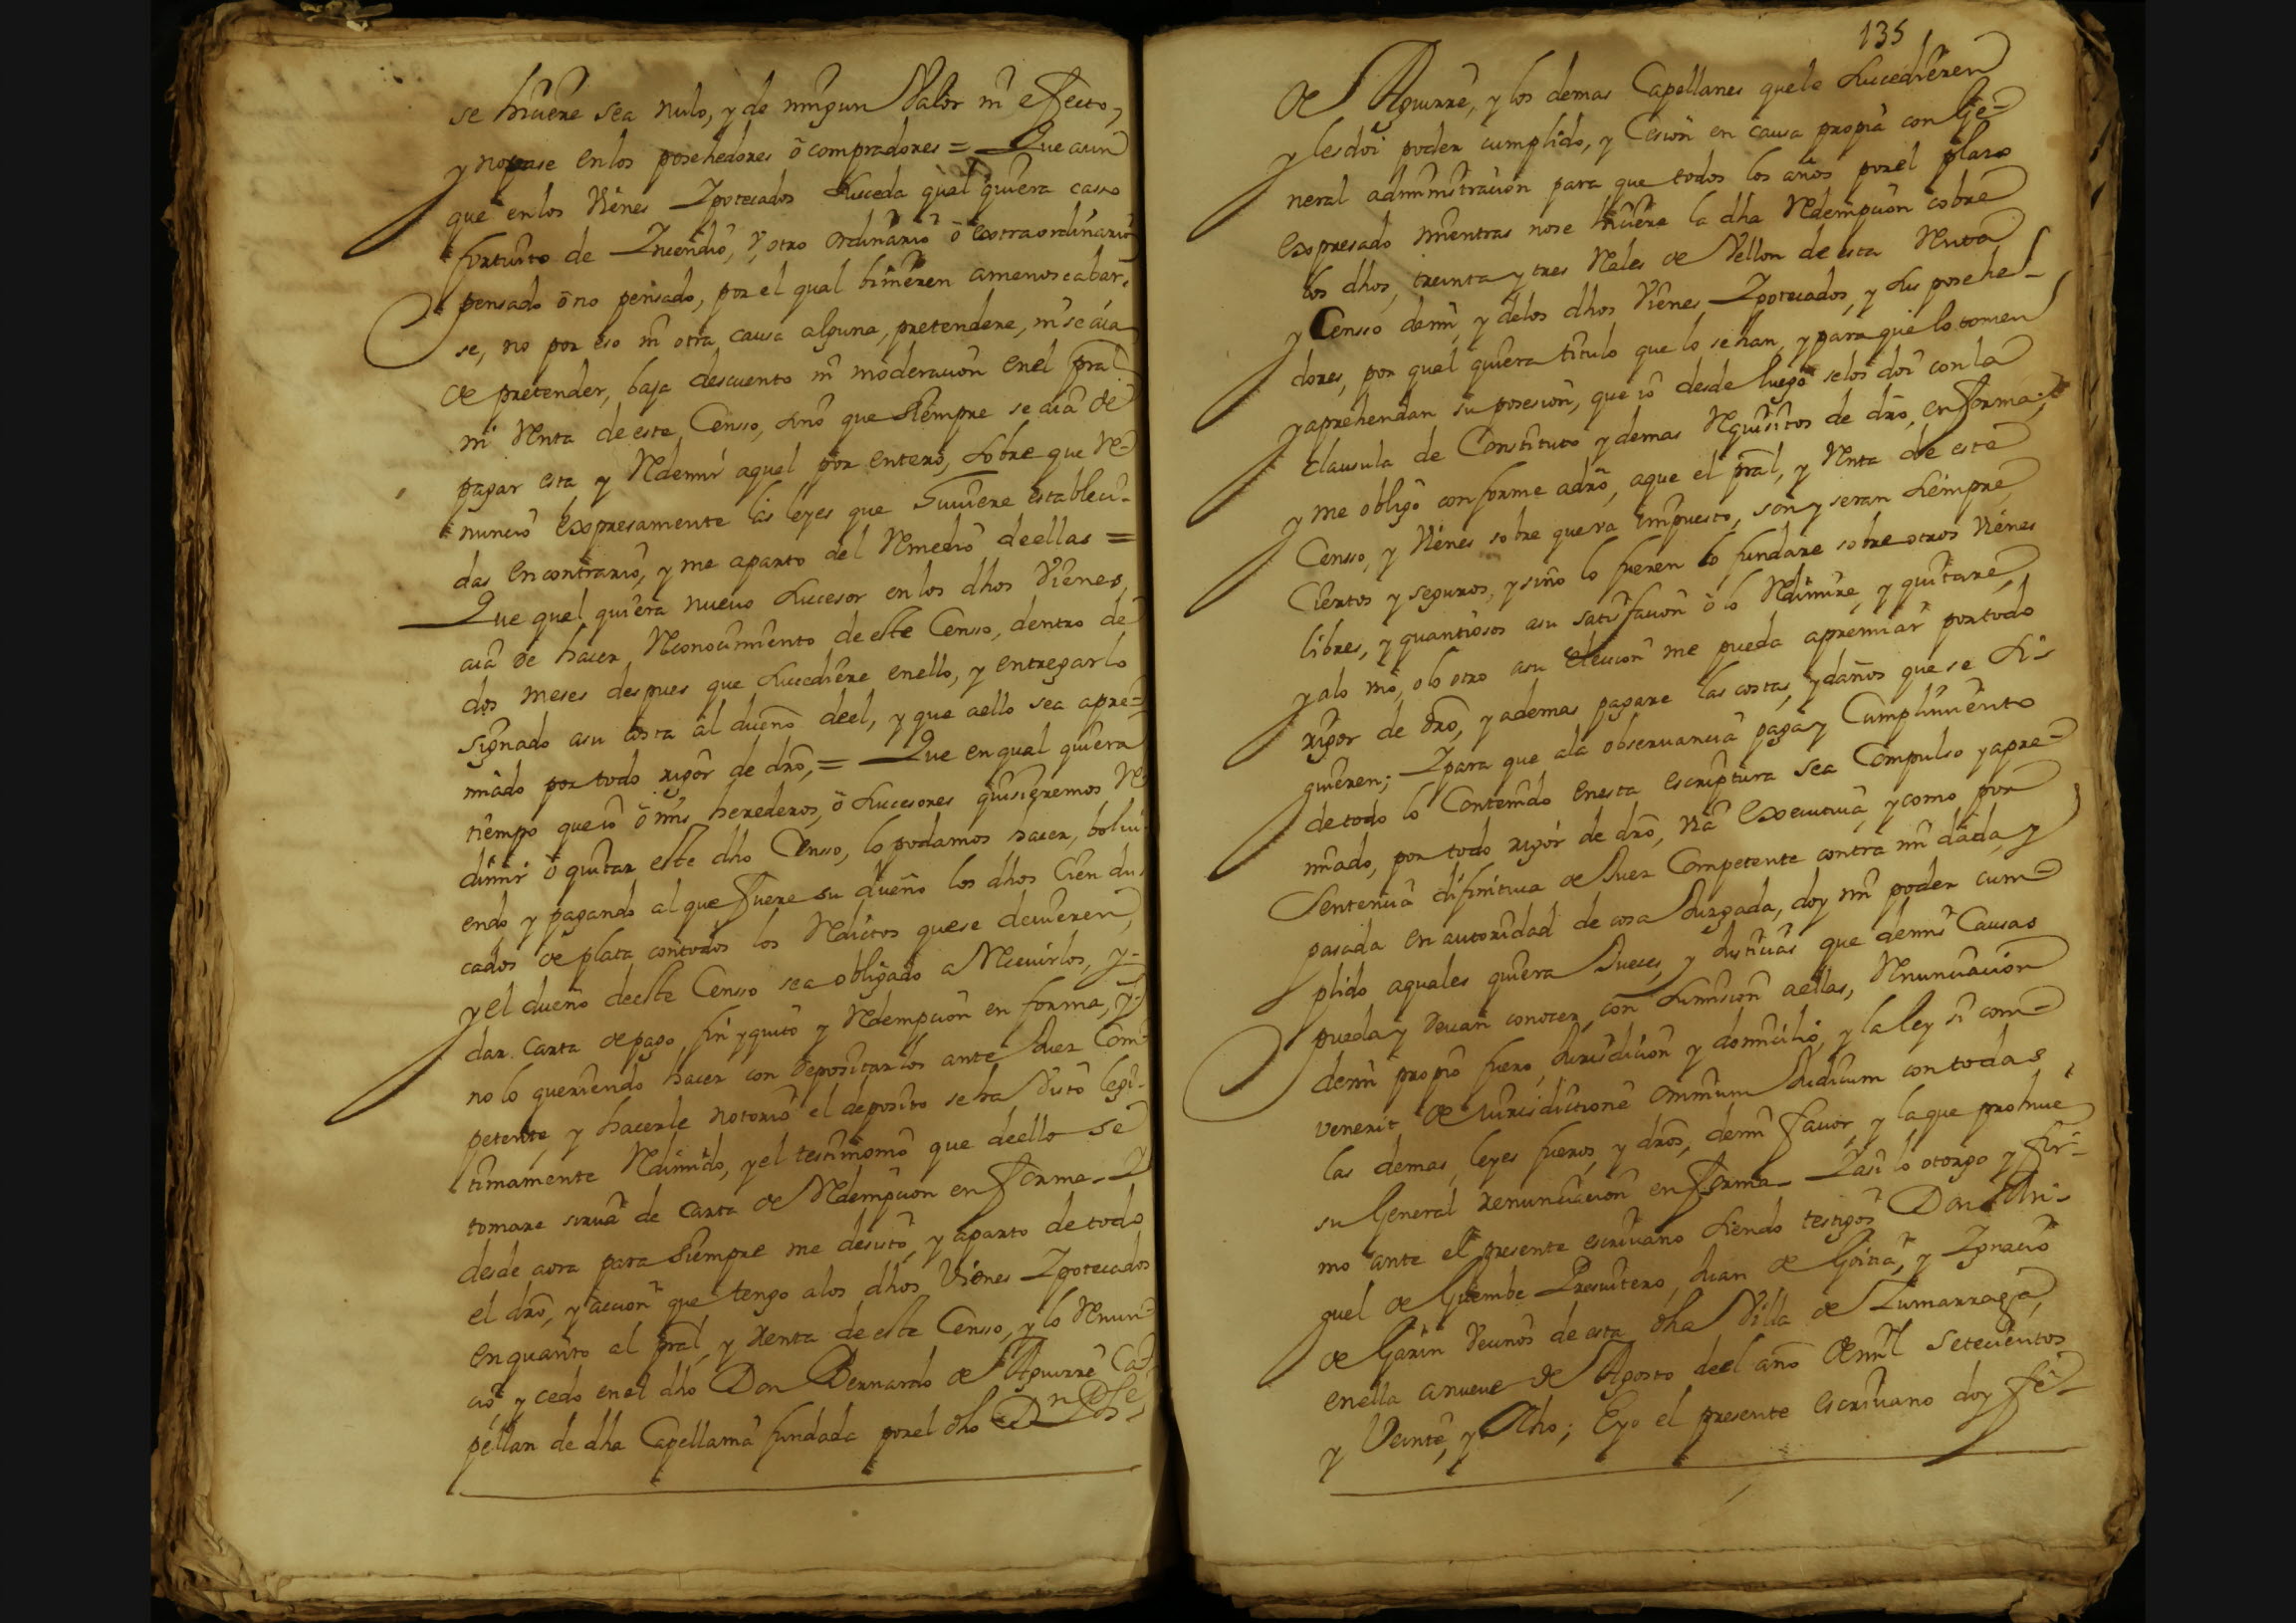 se hiciere sea nulo, y de ningun Valor ni efecto,
y no pase en los posehedores ô compradores = Que aun
que en los Vienes Ypotecados suceda qual quiera caso
fortuito de Incendio, y otro ordinario ô extraordinario
pensado ô no pensado, por el qual binieren a menoscabar-
se, no por eso ni otra causa alguna, pretendere, ni se aia
de pretender, baja descuento ni moderacion en el pral
ni Renta de este Censso, sino que siempre se aia de
pagar esta y Redemir aquel por entero, sobre que Re-
nuncio expresamente las leyes que Huuiere estableci-
das en contrario, y me aparto del Remedio de ellas =
Que quel quiera nueuo sucesor en los dhos Vienes,
aia de hacer Reconocimiento de este Censso, dentro de
dos meses despues que sucediere en ello, y entregarlo
signado a su costa al dueño de el, y que a ello sea apre-
miado por todo rigor de dro, = Que en qual quiera
tiempo que io ô mis herederos, ô sucesores quisieremos Re-
dimir ô quitar este dho Censso, lo podamos hacer, bolui-
endo y pagando al que fuere su dueño los dhos Cien du-
cados de plata con todos los Reditos que se deuieren,
y el dueño de este Censso sea obligado a Reciuirlos, y-
dar carta de pago, fin y quito y Redempcion en forma, y-
no lo queriendo hacer con depositarlos ante Juez Com-
petente, y hacerle notorio el deposito se ha visto legi-
timamente Redimido, y el testimonio que de ello se
tomare sirua de carta de Redempcion en forma- Y
desde aora para siempre me desisto, y aparto de todo
el dro, y accion que tengo a los dhos Vienes Ypotecados
en quanto al pral, y renta de este Censso, y lo Renun-
cio y cedo en el dho Don Bernardo de Aguirre Ca-
pellan de dha Capellania fundada por el dho Dn Jose
135
de Aguirre, y los demas Capellanes que le sucedieren
y les doi poder cumplido, y Cesion en causa propia con Ge-
neral administracion para que todos los años por el plazo
expresado mientras no se hiciere la dha Redempcion cobre
los dhos, treinta y tres Reales de Vellon de esta Renta
y Censso de mi, y de los dhos Vienes Ypotecados, y sus posehe-
dores, por qual quiera titulo que lo sehan, y para que lo tomen
y aprehendan su posesion, que io desde luego se los doi con la
clausula de Constituto y demas Requisitos de dro, en forma;
y me obligo conforme a dro, a que el pral, y Renta de este
Censso, y Vienes sobre que va impuesto, son y seran siempre,
Ciertos y seguros, y sino lo fueren lo fundare sobre otros Vienes
libres, y quantiosos a su satisfacion ô lo Redimire, y quitare,
y a lo uno, o lo otro a su eleccion me pueda apremiar por todo
rigor de dro, y ademas pagare las costas, y daños que se si-
guieren; Y para que a la obseruancia paga y Cumplimiento
de todo lo Contenido en esta escriptura sea Compulso y apre-
miado, por todo rigor de dro, via executiua, y como por
Sentencia difinitiua de Juez Competente contra mi dada, y
pasada en autoridad de cosa Juzgada, doy mi poder cum-
plido a quales quiera Jueces, y Justicias que de mis Causas
pueda y deuan conocer, con sumision a ellas, Renunciacion
de mi propio fuero, Jurisdicion y domicilio, y la ley si com-
venerit de Iurisdictione omnium Iudicum con todas
las demas, leyes fueros, y dros, de mi fauor, y la que prohiue
su General renunciacion en forma- Y asi lo otorgo y fir-
mo ante el presente escriuano siendo testigos Don Mi-
guel de Guembe Presuitero, Juan de Goitia, y Ignacio
de Garin vecinos de esta dha Villa de Zumarraga,
en ella a nueue de Agosto de el año de mil setecientos
y Veinte, y Ocho; E yo el presente escriuano doy fe-